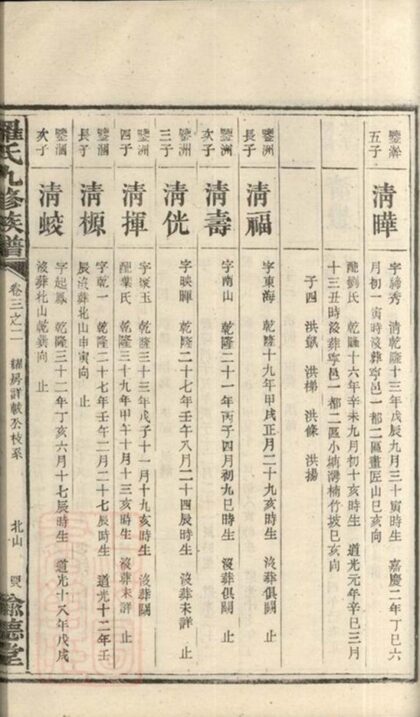 鑒瀚
五子
清曄
字締秀 清乾隆十三年戊辰九月三十寅時生 嘉慶二年丁巳六
月初一寅時沒葬寧邑一都二區畫匠山巳亥向
配劉氏 乾隆十六年辛未九月初十亥時生 道光元年辛巳三月
十三丑時沒葬寧邑一都二區小塘灣楠竹坡巳亥向
子四 洪凱 洪梯 洪條 洪揚
鑒洲
長子
清福
字東海 乾隆十九年甲戌正月二十九亥時生 沒葬俱闕 止
鑒洲
次子
清壽
字南山 乾隆二十一年丙子四月初九巳時生 沒葬俱闕 止
鑒洲
三子
清侊
字映暉 乾隆二十七年壬午八月二十四辰時生 沒葬未詳 止
鑒洲
四子
清揮
字璞玉 乾隆三十三年戊子十一月十九亥時生 沒葬闕
配葉氏 乾隆三十九年甲午十月十三亥時生 沒葬未詳 止
鑒涸
長子
清榞
字乾一 乾隆二十七年壬午二月二十七辰時生 道光十二年壬
辰沒葬北山申寅向 止
鑒涸
次子
清蛟
字起鳳 乾隆三十二年丁亥六月十七辰時生 道光十八年戊戌
沒葬北山乾巽向 止
羅氏九修族譜
卷三之二
耀房詳載公枝系
北山
豫德堂